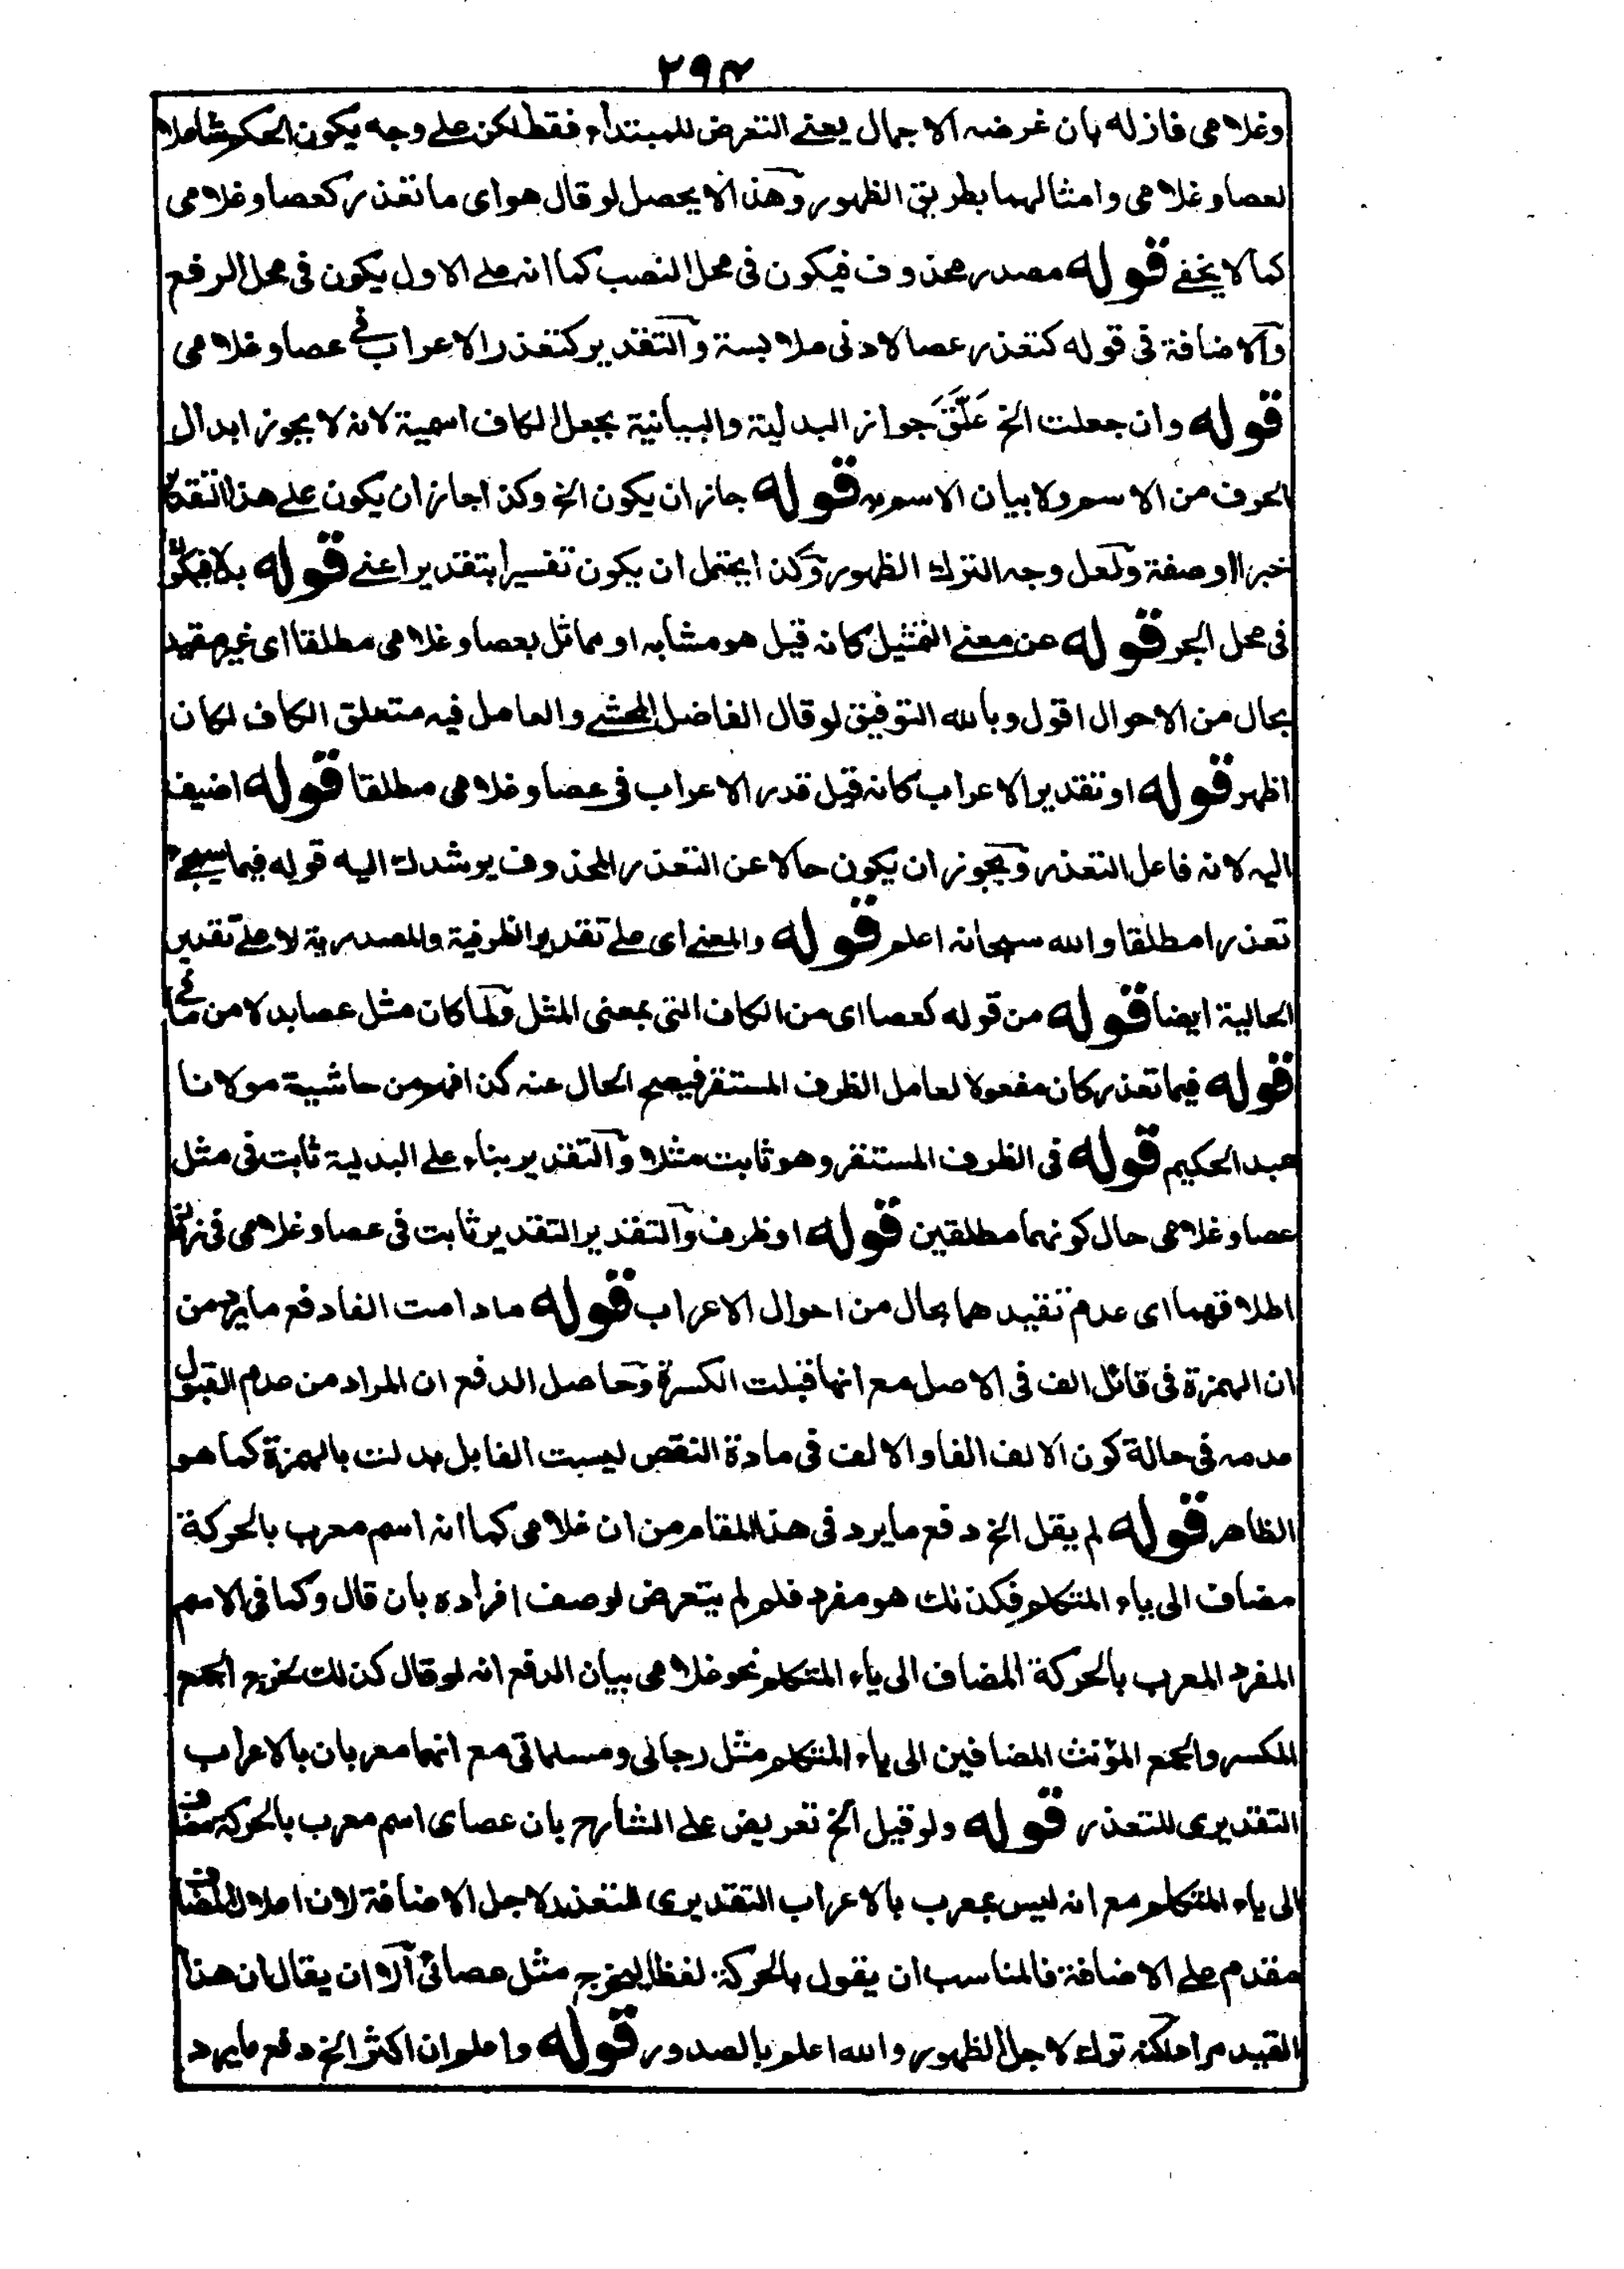 ٢٩٤
وغلامی فازله بان غرضه الاجمال یعنے التعرض للمبتداء فقط لکن علے وجه یکون الحکم شاملا
لعصا وغلامی وامثالهما بطریق الظهور وهذا لا یحصل لو قال هو ای ما تعذر کعصا وغلامی
کما لا یخفے قوله مصدر محذوف فیکون فی محل النصب کما انه علے الاول یکون فی محل الرفع
والاضافة فی قوله کتعذر عصا لادنی ملابسة والتقدیر کتعذر الاعراب فی عصا وغلامی
قوله وان جعلت الخ عَلَّقَ جواز البدلیة والبیانیة بجعل الکاف اسمیة لانه لا یجوز ابدال
الحرف من الاسم ولا بیان الاسم به قوله جاز ان یکون الخ وکذا جاز ان یکون علے هذا التقدیر
خبرا او صفة ولعل وجه الترک الظهور وکذا یحتمل ان یکون تفسیرا بتقدیر اعنے قوله بدلا فیکون
فی محل الجر قوله عن معنے التمثیل کانه قیل هو مشابه او مماثل بعصا وغلامی مطلقا ای غیر مقید
بحال من الاحوال اقول وبالله التوفیق لو قال الفاضل المحشے والعامل فیه متعلق الکاف لکان
اظهر قوله او تقدیر الاعراب کانه قیل قدر الاعراب فی عصا وغلامی مطلقا قوله اضیف
الیه لانه فاعل التعذر ویجوز ان یکون حالا عن التعذر المحذوف یرشدک الیه قوله فیما سیجیء
تعذرا مطلقا والله سبحانه اعلم قوله والمعنے ای علے تقدیر الظرفیة والمصدریة لا علے تقدیر
الحالیة ایضا قوله من قوله کعصا ای من الکاف التی بمعنی المثل ولما کان مثل عصا بدلا من ما فی
قوله فیما تعذر کان مفعولا لعامل الظرف المستقر فیصح الحال عنه کذا فهم من حاشیة مولانا
عبد الحکیم قوله فی الظرف المستقر وهو ثابت مثلا والتقدیر بناء علے البدلیة ثابت فی مثل
عصا وغلامی حال کونهما مطلقین قوله او ظرف والتقدیر التقدیر ثابت فی عصا وغلامی فی زمان
اطلاقهما ای عدم تقیید هما بحال من احوال الاعراب قوله ما دامت الفا دفع ما یرد من
ان الهمزة فی قائل الف فی الاصل مع انها قبلت الکسرة وحاصل الدفع ان المراد من عدم القبول
عدمه فی حالة کون الالف الفا والالف فی مادة النقض لیست الفا بل بدلت بالهمزة کما هو
الظاهر قوله لم یقل الخ دفع ما یرد فی هذا المقام من ان غلامی کما انه اسم معرب بالحرکة
مضاف الی یاء المتکلم فکذلک هو مفرد فلم لم یتعرض لوصف افراده بان قال وکما فی الاسم
المفرد المعرب بالحرکة المضاف الی یاء المتکلم نحو غلامی بیان الدفع انه لو قال کذلک لخرج الجمع
المکسر والجمع المؤنث المضافین الی یاء المتکلم مثل رجالی ومسلماتی مع انهما معربان بالاعراب
التقدیری للتعذر قوله ولو قیل الخ تعریض علے الشارح بان عصای اسم معرب بالحرکة مضاف
الی یاء المتکلم مع انه لیس بمعرب بالاعراب التقدیری للتعذر لاجل الاضافة لان اعلال المضاف
مقدم علے الاضافة فالمناسب ان یقول بالحرکة لفظا لیخرج مثل عصائی الا ان یقال ان هذا
القید مراد لکنه ترک لاجل الظهور والله اعلم بالصدور قوله واعلم ان اکثر الخ دفع ما یرد